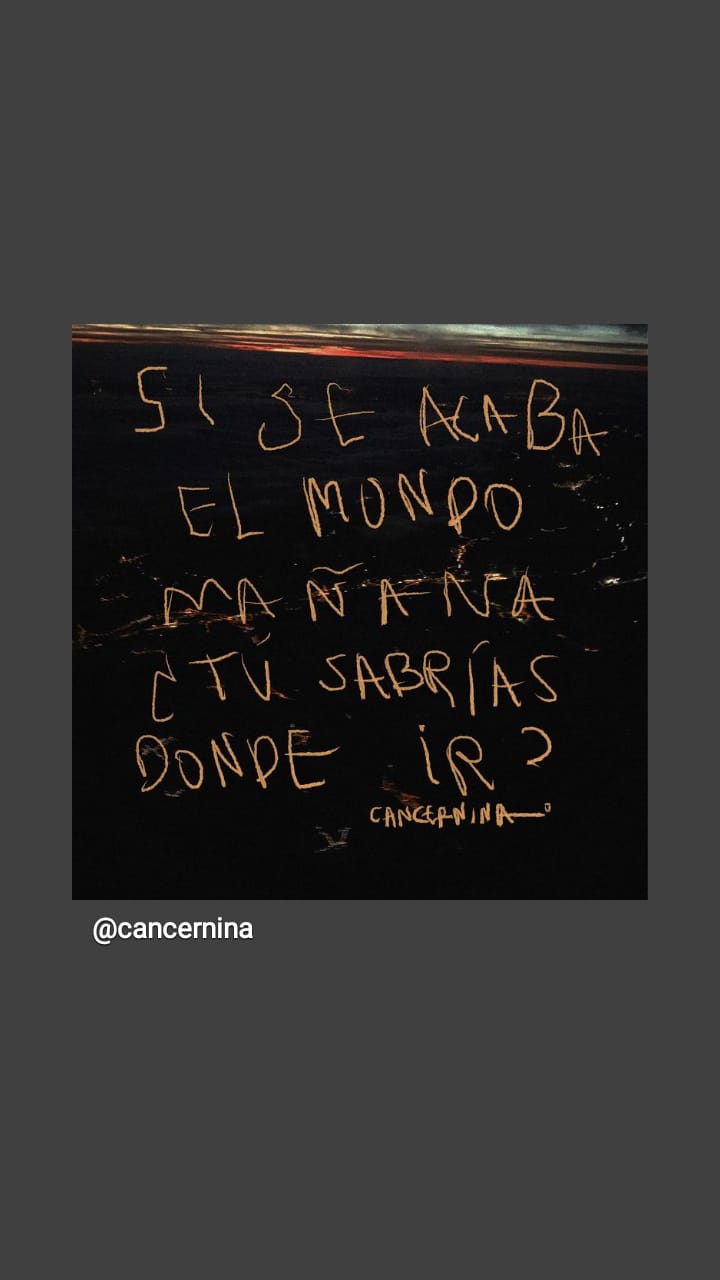 SI SE ACABA
EL MUNDO
MAÑANA
¿TÚ SABRÍAS
DONDE IR?
CANCERNINA
@cancernina